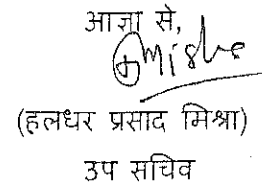 आज्ञा से,
(हलधर प्रसाद मिश्रा)
उप सचिव